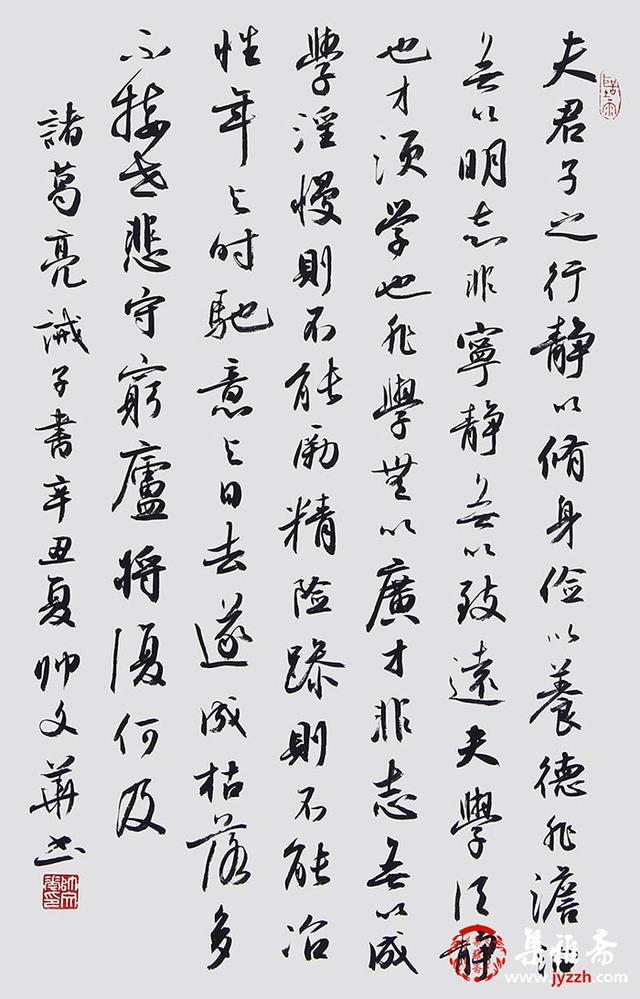 夫君子之行静以脩身俭以養德非澹泊
无以明志非寧静无以致遠夫學须静
也才须学也非學無以廣才非志无以成
學淫慢則不能励精险躁則不能冶
性年与时馳意与日去遂成枯落多
不接世悲守窮廬将復何及
諸葛亮誡子書辛丑夏帅文華书
集雅斋
www.jyzzh.com